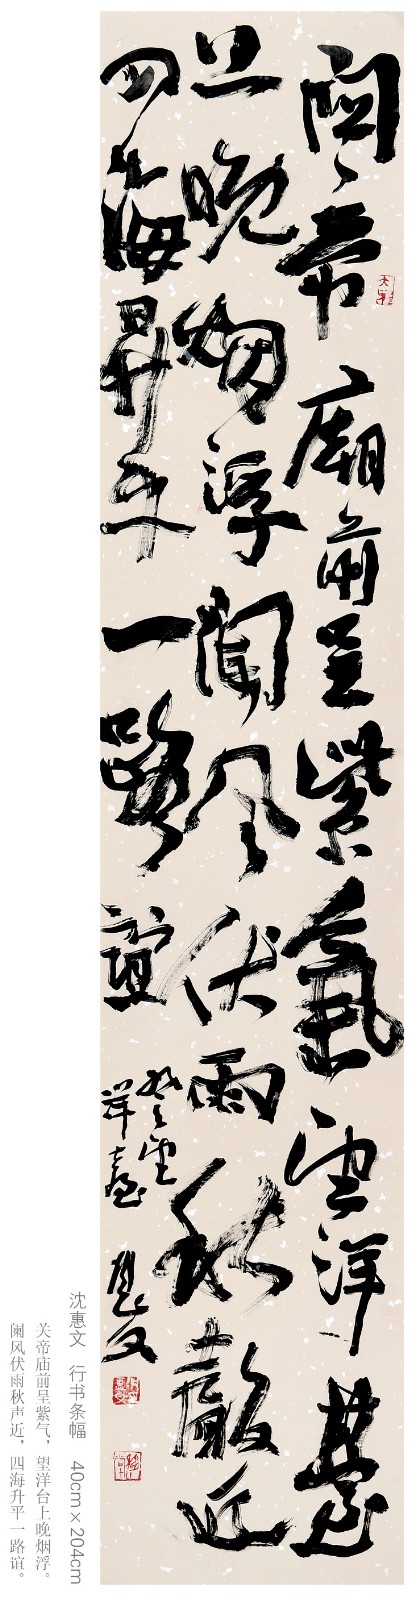 關帝廟前呈紫氣望洋臺
上晚烟浮闌風伏雨秋聲近
四海昇平一路誼
登望
洋臺
惠文
沈惠文 行书条幅 40cm×204cm
关帝庙前呈紫气，望洋台上晚烟浮。
阑风伏雨秋声近，四海升平一路谊。